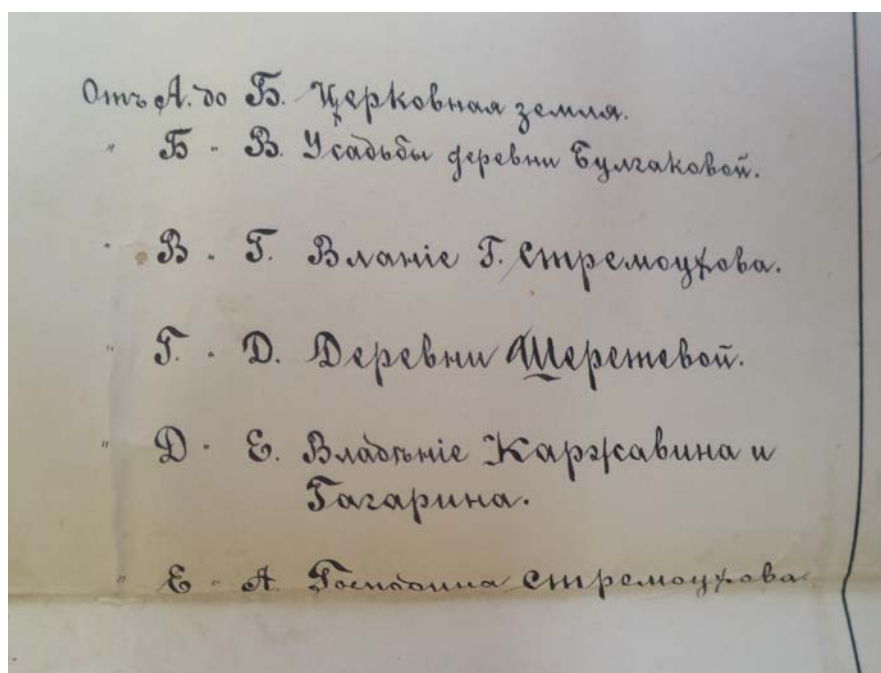 Отъ А. до Б. Церковная земля.
" Б " В. Усадьбы деревни Булгаковой.
" В " Г. Вланіе Г. Стремоухова.
" Г. " Д. Деревни Шереметевой.
" Д " Е. Владѣніе Каржавина и
Гагарина.
" Е " А Господина Стремоухова